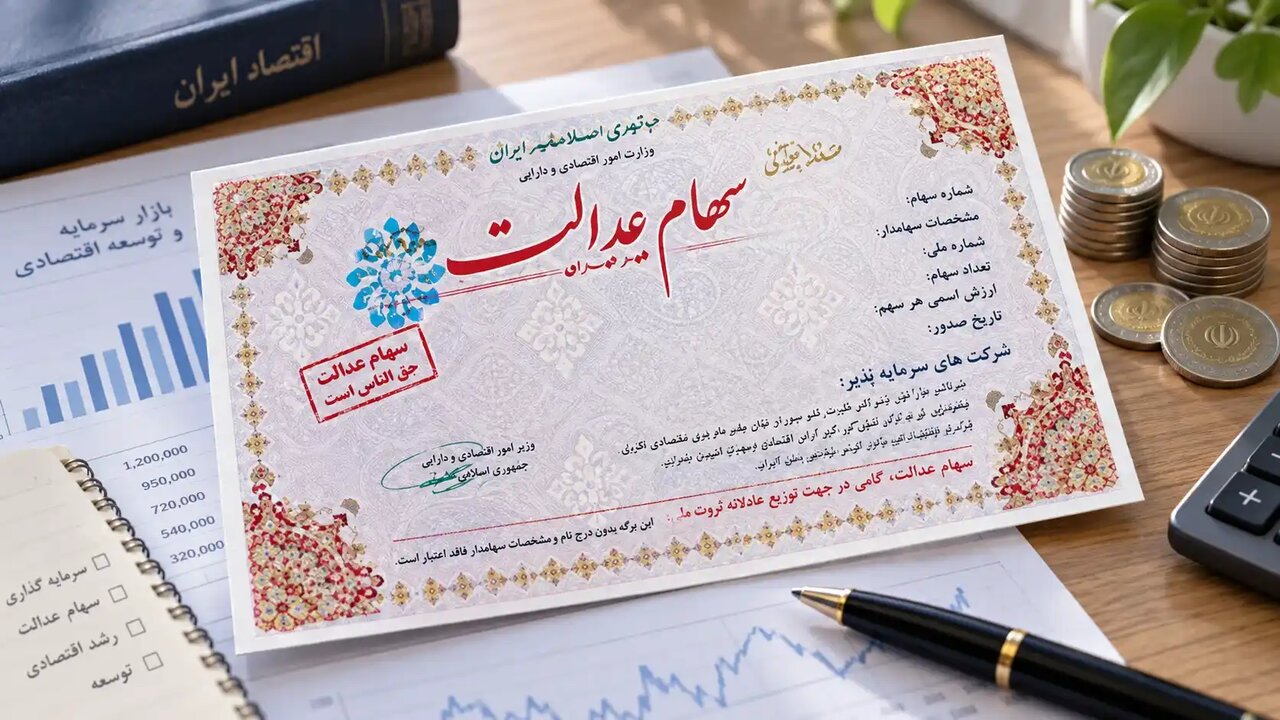 اقتصاد ایران
بازار سرمایه
و توسعه اقتصادی
ایران
وزارت امور اقتصادی و دارایی
سهام عدالت
شماره سهام:
مشخصات سهامدار:
شماره ملی:
تعداد سهام:
ارزش اسمی هر سهم:
تاریخ صدور:
شرکت های سرمایه پذیر:
سهام عدالت
حق الناس است
وزیر امور اقتصادی و دارایی
جمهوری اسلامی
سهام عدالت، گامی در جهت توزیع عادلانه ثروت ملی:
این برگه بدون درج نام و مشخصات سهامدار فاقد اعتبار است.
1,200,000
950,000
720,000
540,000
320,000
سرمایه گذاری
سهام عدالت
رشد اقتصادی
توسعه
+